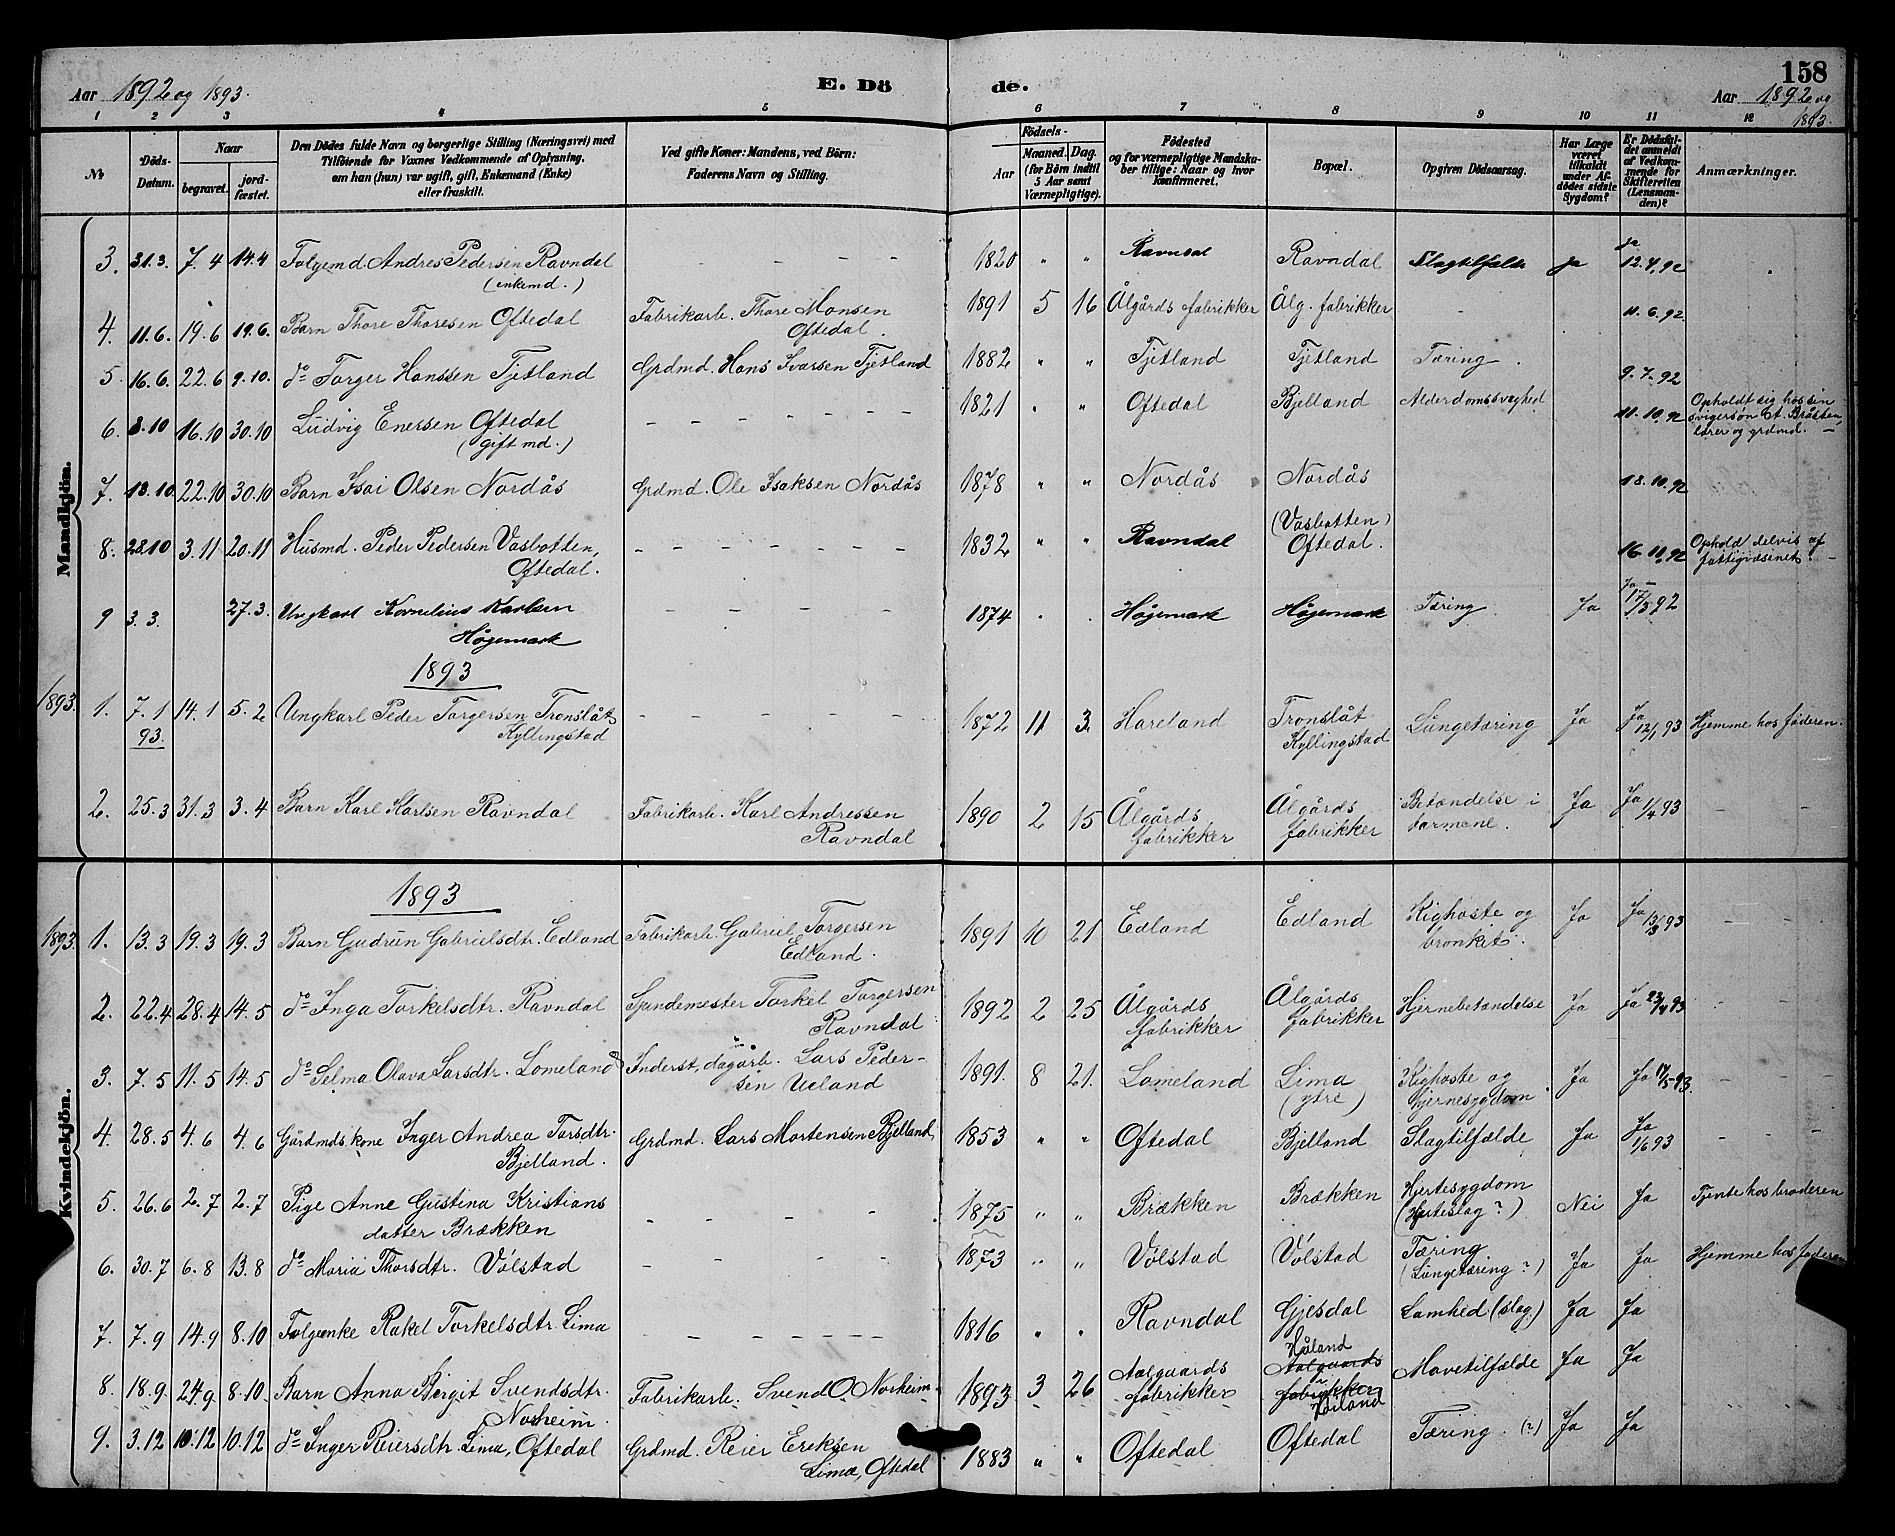 158
Aar 1892 og 1893.
E. Dö
de.
Aar 1892 og
1893.
1 2 3 4 5 6 7 8 9 10 11 12
No
Döds-
Datum.
Naar
begravet.
jord-
fæstet.
Den Dödes fulde Navn og borgerlige Stilling (Næringsvei) med
Tilföiende for Voxnes Vedkommende af Oplysning,
om han (hun) var ugift, gift, Enkemand (Enke)
eller fraskilt.
Ved gifte Koner: Mandens, ved Börn:
Faderens Navn og Stilling.
Födsels-
Aar
Maaned. Dag.
(for Börn indtil
5 Aar samt
Værnepligtige).
Födested
og for værnepligtige Mandska-
ber tillige: Naar og hvor
konfirmeret.
Bopæl.
Opgiven Dödsaarsag.
Har Læge
været
tilkaldt
under Af-
dödes sidste
Sygdom?
Er Dödsfal-
det anmeldt
af Vedkom-
mende for
Skifteretten
(Lensman-
den)?
Anmærkninger.
Mandkjön.
3. 31.3. 7.4 14.4 Folgemd. Andres Pedersen Ravndal - - - - 1820 " " Ravndal Ravndal Slagtilfælde ja ja 12.4.92 "
(enkemd.)
4. 11.6. 19.6 19.6. Barn Thore Thoresen Oftedal Fabrikarb. Thore Monsen 1891 5 16 Ålgårds fabrikker Ålg. fabrikker - 11.6.92.
Oftedal.
5. 16.6. 22.6 9.10. do Torger Hanssen Tjetland Grdmd. Hans Ivarsen Tjetland 1882 " " Tjetland Tjetland Tæring. 9.7.92
6. 8.10 16.10 30.10 Ludvig Enersen Oftedal - - - - - - 1821 " " Oftedal Bjelland Alderdomssvaghed 11.10.92 Opholdt sig hos sin
(gift md.) svigersøn A. Bråsten,
lærer og grdmd. -
7. 13.10. 22.10 30.10 Barn Isai Olsen Nordås Grdmd. Ole Isaksen Nordås 1878 " " Nordås Nordås 18.10.92
8. 28.10 3.11 20.11 Husmd. Peder Pedersen Vasbotten, - - - - - - - 1832 " " Ravndal (Vasbotten) 16.11.92 Ophold delvis af
Oftedal. Oftedal. fattigvæsenet. -
9 3.3. 27.3. Ungkarl Kornelius Karlsen - - - - - 1874 " " Høgemark Høgemark Tæring. Ja Ja - 17/3 92
Høgemark
1893
1893. 1. 7.1 14.1 5.2 Ungkarl Peder Torgersen Tronslåt - - - - - 1872 11 3 Hareland Tronslåt Lungetæring Ja Ja 12/1 93 Hjemme hos faderen.
93. Kyllingstad Kyllingstad
2. 25.3 31.3 3.4 Barn Karl Karlsen Ravndal Fabrikarb. Karl Andressen 1890 2 15 Ålgårds Ålgårds Betændelse i Ja Ja 1/4 93 - -
Ravndal fabrikker fabrikker tarmene.
Kvindekjön.
1893
1893. 1. 13.3 19.3 19.3 Barn Gudrun Gabrielsdtr. Edland Fabrikarb. Gabriel Torgersen 1891 10 21 Edland Edland Kighoste og Ja Ja 13/3 93 - -
Edland. bronkit.
2. 22.4 28.4 14.5 do Inga Torkelsdtr. Ravndal Spindemester Torkel Torgersen 1892 2 25 Ålgårds Ålgårds Hjernebetændelse Ja Ja 23/4 93 - -
Ravndal fabrikker fabrikker
3. 7.5 11.5 14.5 do Selma Olava Larsdtr. Lomeland Inderst, dagarb. Lars Peder- 1891. 8 21. Lomeland Lima Kighoste og Ja Ja 17/5 93. - -
sen Ueland (ytre) hjernesygdom
4. 28.5 4.6 4.6 Gårdmds kone Inger Andrea Torsdtr. Grdmd. Lars Mortensen Bjelland, 1853 " " Oftedal Bjelland Slagtilfælde Ja Ja 1/6 93 - - -
Bjelland.
5. 26.6 2.7 2.7 Pige Anne Gustina Kristians - - - - 1875 " " Brækken Brækken Hjertesygdom Nei Ja Tjente hos broderen
datter Brækken (Hjerteslag?)
6. 30.7 6.8 13.8 do Maria Thorsdtr. Vølstad - - - - 1873 " " Vølstad Vølstad Tæring. Ja Ja Hjemme hos faderen
(Lungetæring?)
7. 7.9 14.9 8.10 Folgeenke Rakel Torkelsdtr. Lima - - - - - - - 1816 " " Ravndal Gjesdal Lamhed (slag) Ja Ja
Håland
8. 18.9 24.9 8.10 Barn Anna Birgit Svendsdtr. Fabrikarb. Svend O Norheim 1893 3 26 Aalgaards Aalgaards Mavetilfælde Ja Ja
Norheim. fabrikker fabrikker
Håland
9. 3.12 10.12 10.12 do Inger Reiersdtr. Lima, Oftedal Grdmd. Reier Eriksen 1883 " " Oftedal Oftedal Tæring. (?) Ja Ja
Lima, Oftedal